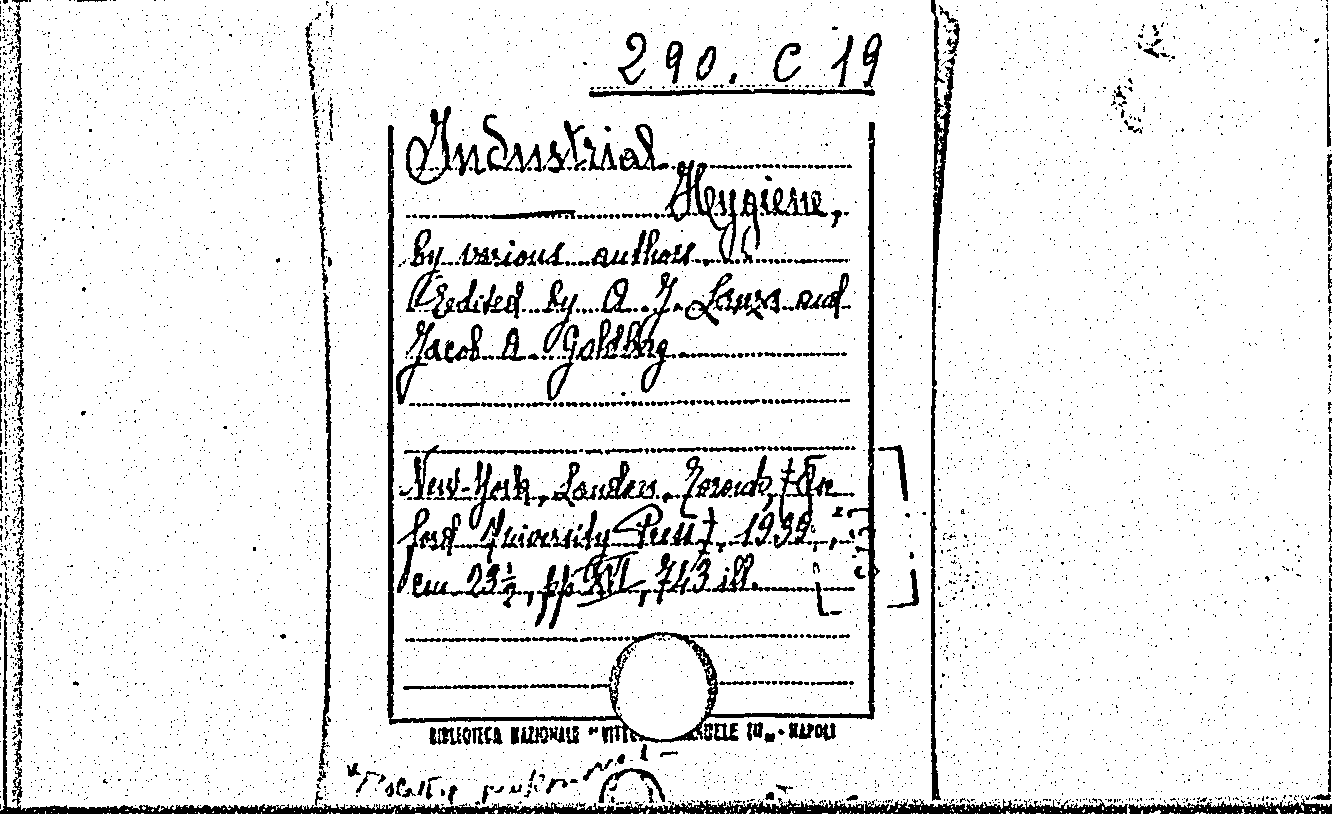 290. C 19
Industrial
Hygiene,
by various authors.
Edited by A. J. Lanza and
Jacob A. Goldberg
New-York, London, Toronto, Ox
ford University Press, 1939.
cm 23½, pp XVI, 743 ill.
BIBLIOTECA NAZIONALE "VITTO ANUELE III" - NAPOLI